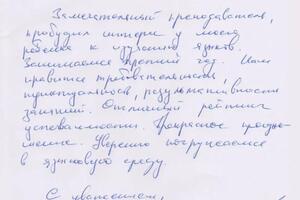 Замечательный преподаватель,
пробудил интерес у моего
ребенка к изучению языков.
Занимаемся третий год. Нам
нравится требовательность,
пунктуальность, результативность
занятий. Отличный рейтинг
успеваемости. Прекрасное произно-
шение. Уверенно погружаемся
в языковую среду.
С уважением,